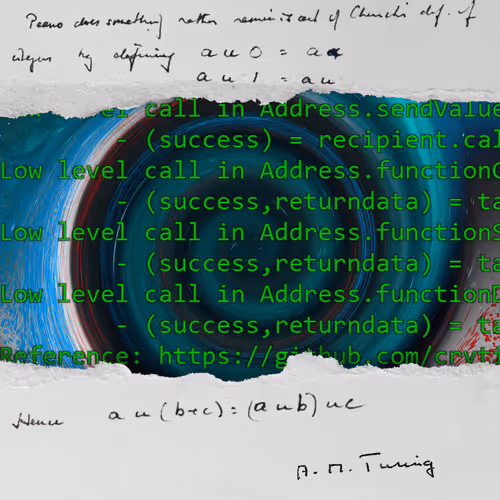 Peano does something rather reminiscent of Church's def. of
integers by defining a u 0 = a
a u 1 = au
Low level call in Address.sendValue
- (success) = recipient.cal
Low level call in Address.functionC
- (success,returndata) = ta
Low level call in Address.functionS
- (success,returndata) = ta
Low level call in Address.functionD
- (success,returndata) = ta
Reference: https://github.com/cryti
Hence a u (b+c) = (a u b) u c
A. M. Turing